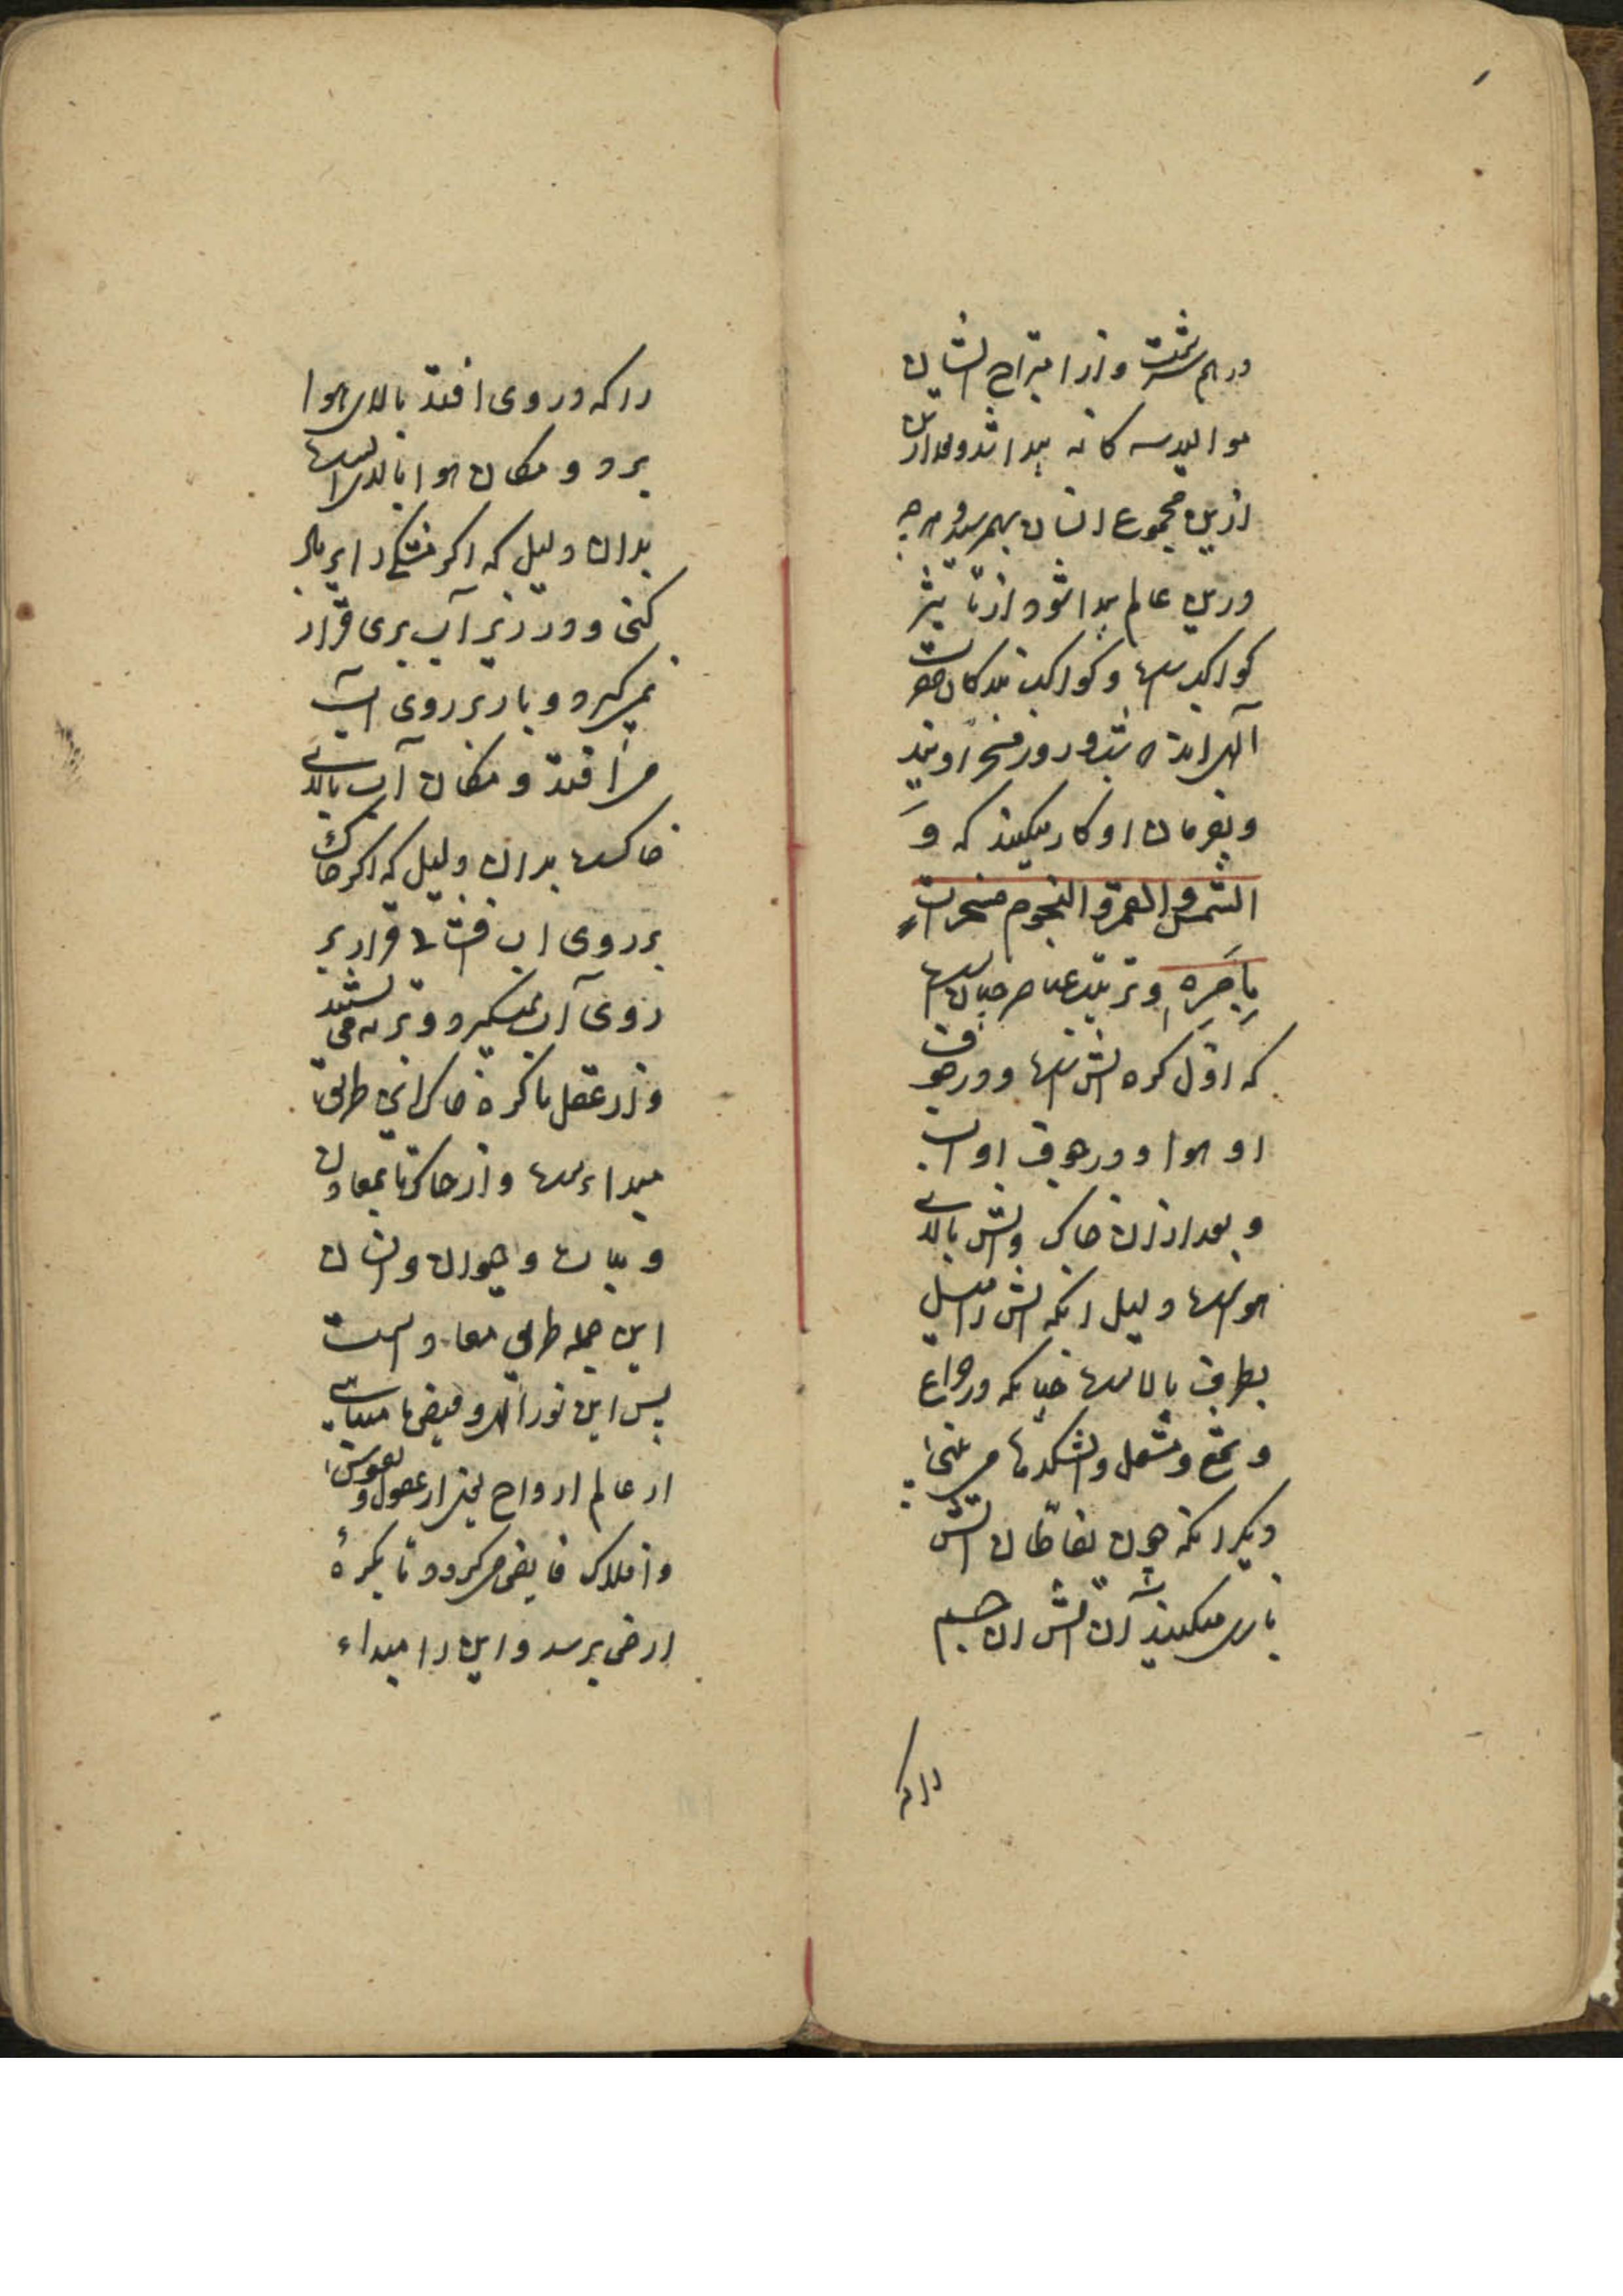 درهم سرشت و از امتزاج ایشان
موالید سه کانه پیدا شد و بعد ازین
ازین مجموع انسان بهم رسید و هر چه
درین عالم پیدا شود از تأثیر
کواکبست و کواکب بندکان حضرت
آلهی اند و مسخر اویند
و بفرمان او کار میکنند که وَ
الشمس و القمر و النجوم مسخرات
بِاَمرِه و ترتیب عناصر چنانست
که اوّل کره اتش است و در جوف
او هوا و در جوف او اب
و بعد از ان خاک و اتش بالای
هواست دلیل انکه اتش را میل
بطرف بالاست چنانکه در چراغ
و شمع و مشعل و اتشکدها می بینی
دیکر انکه چون نفاطان اتش
بازی میکنند آن اتش ان جسم
را که
را که در وی افتد بالای هوا
برد و مکان هوا بالای ابست
بدان دلیل که اکر مشکی را پر باد
کنی و در زیر آب بری قرار
نمیکیرد و باز بر روی اب
می افتد و مکان آب بالای
خاکست بدان دلیل که اکر خاک
بر روی اب افشانی قرار بر
روی آب نمیکیرد و بته می نشیند
و از عقل تا کره خاک این طریق
مبداءست و از خاک تا بمعادن
و نبات و حیوان و انسان
این جمله طریق معاد است
پس این نور الهی و فیض نامتناهی
از عالم ارواح یعنی از عقول و نفوس
و افلاک فایض میکردد تا بکرهٔ
ارض برسد و این را مبداء